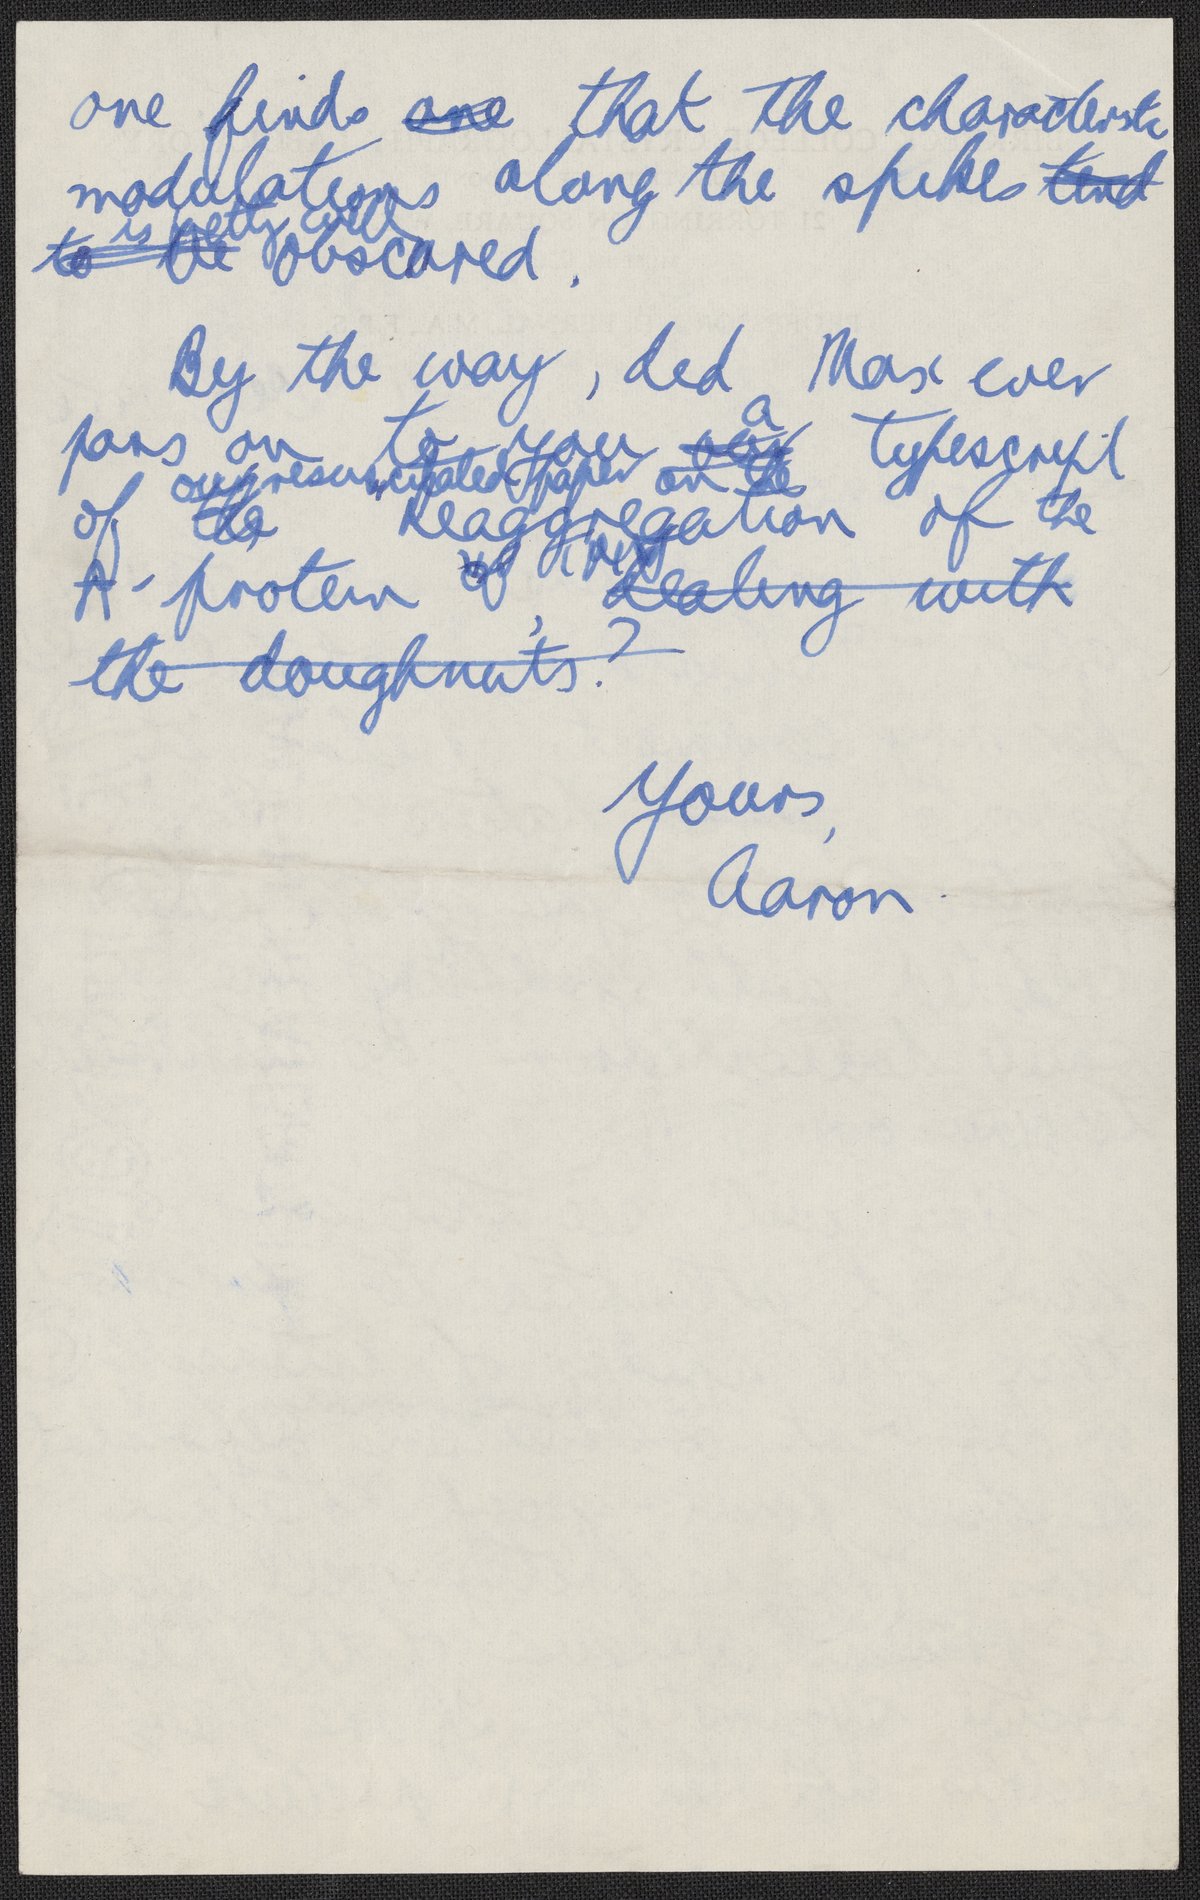 one finds one that the characteristic
modulations along the spikes tend
is pretty well
to be obscured.
By the way, did Max ever
a
pass on to you typescript
our resuscitated paper on the
of the Reaggregation of the
TMV
A-protein of, dealing with
the doughnuts?
Yours,
Aaron.